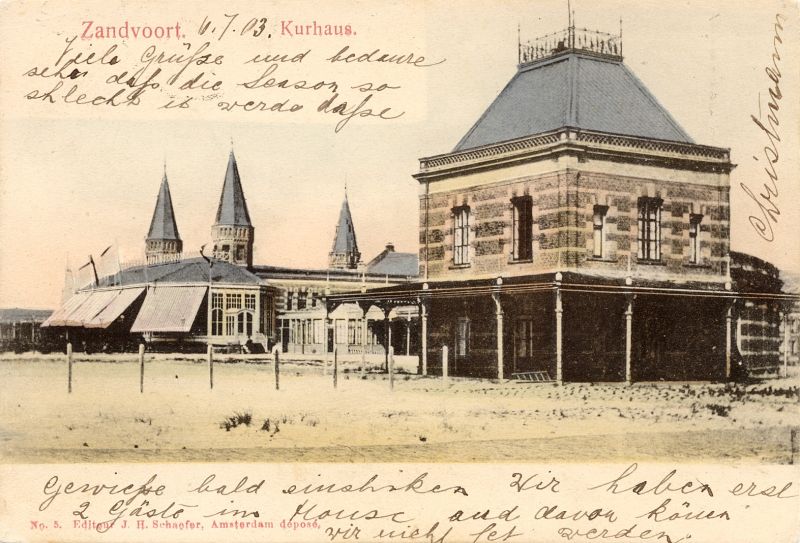 Zandvoort. 6.7.03. Kurhaus.
Viele Grüße und bedaure
sehr daß die Season so
shlecht is werde daße
Christmann
Gewiße bald Wir haben erst
2 Gäste im House and davon könen
wir nicht fet werden.
No. 5. Editeur J. H. Schaefer, Amsterdam déposé.